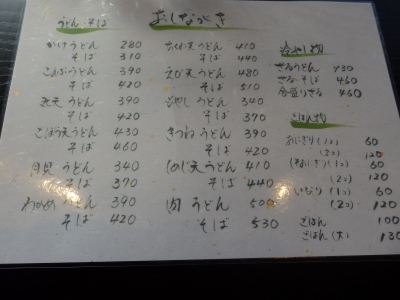 おしながき
うどん・そば
かけうどん 280
そば 310
こんぶうどん 390
そば 420
天うどん 390
そば 420
ごぼう天うどん 430
そば 460
月見うどん 340
そば 370
わかめうどん 390
そば 420
ちくわ天うどん 410
そば 440
えび天うどん 480
そば 510
冷やしうどん 340
そば 370
きつねうどん 390
そば 420
しめじ天うどん 410
そば 440
肉うどん 500
そば 530
冷やし物
ざるうどん 430
ざるそば 460
合盛りざる 460
ごはん物
おにぎり(1コ) 60
(2コ) 120
(1コ) 60
(2コ) 120
いなり(1コ) 60
(2コ) 120
ごはん 100
ごはん(大) 130